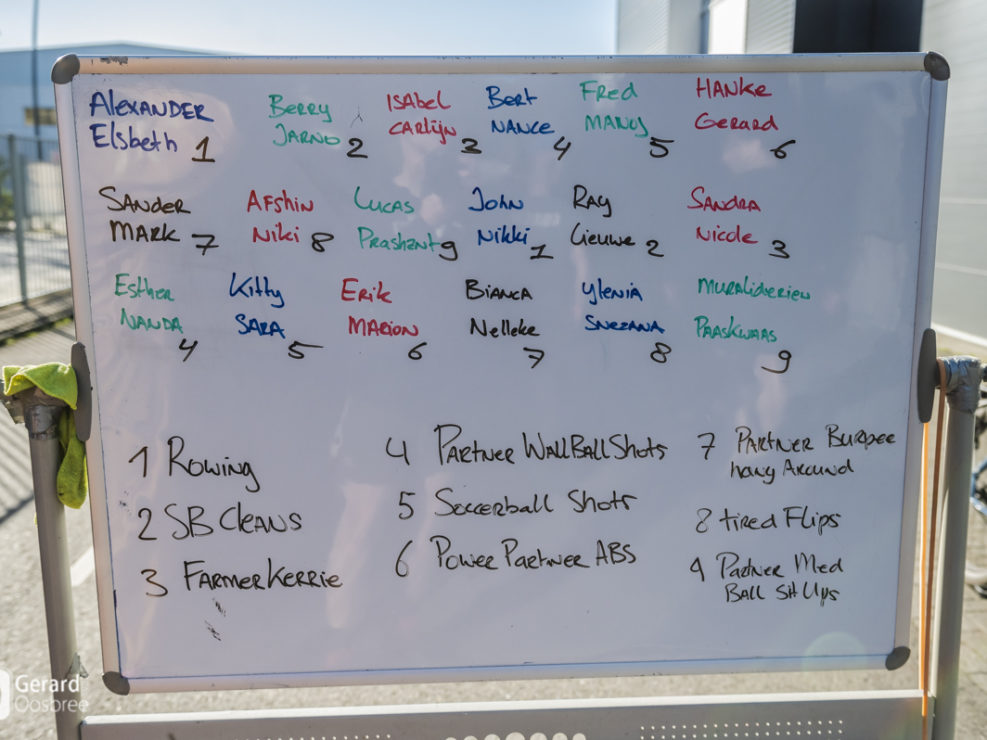 ALEXANDER
Elsbeth 1
Berry
JARNO 2
ISAbel
CARlijn 3
Bert
NANCE 4
FRed
MANUS 5
HANKe
Gerard 6
SANDER
MARK 7
AFshin
Niki 8
LUCAS
Prashant 9
John
Nikki 1
RAY
Lieuwe 2
SANDRA
Nicole 3
Esther
NANDA 4
Kitty
SARA 5
ERik
MARION 6
BiANCA
Nelleke 7
Ylenia
SNEZANA 8
MURALIDERIEN
PAASKWAAS 9
1 Rowing
2 SB CleANS
3 FARMER KERRIE
4 PARTNER WALLBALL Shots
5 Soccerball Shots
6 Power PARTNER ABS
7 PARTNER BURPEE
hang Around
8 tired Flips
9 Partner Med
BALL Sit Ups
Gerard
Oosbree